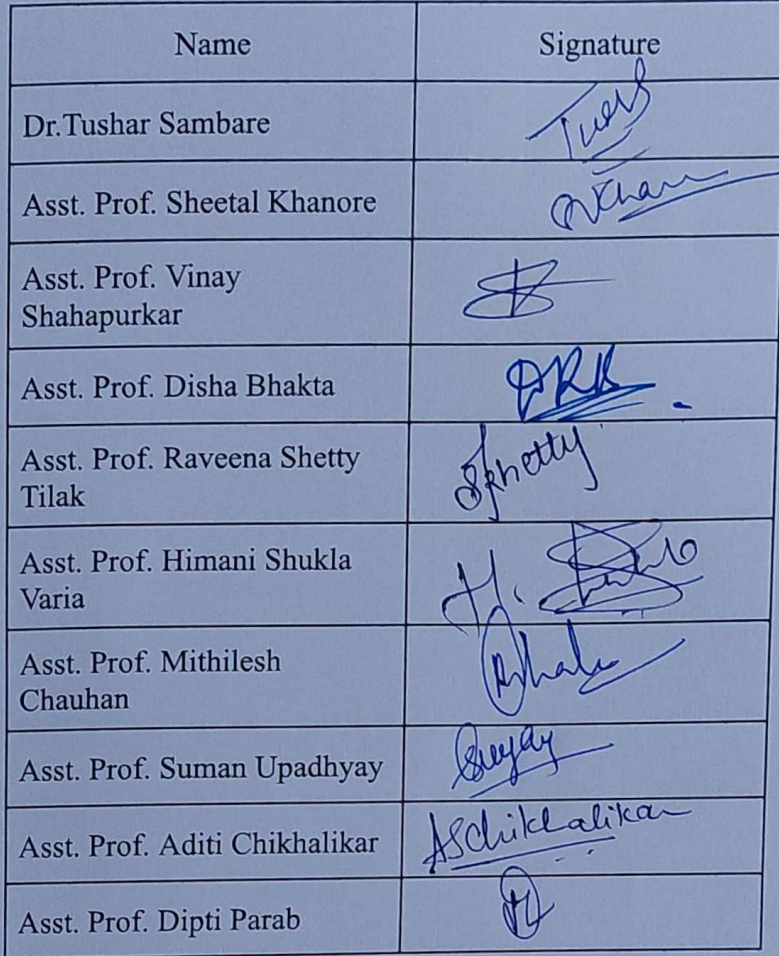 Name Signature
Dr.Tushar Sambare
Asst. Prof. Sheetal Khanore
Asst. Prof. Vinay
Shahapurkar
Asst. Prof. Disha Bhakta DRB
Asst. Prof. Raveena Shetty
Tilak
Asst. Prof. Himani Shukla
Varia
Asst. Prof. Mithilesh
Chauhan
Asst. Prof. Suman Upadhyay
Asst. Prof. Aditi Chikhalikar ASChikhalikar
Asst. Prof. Dipti Parab